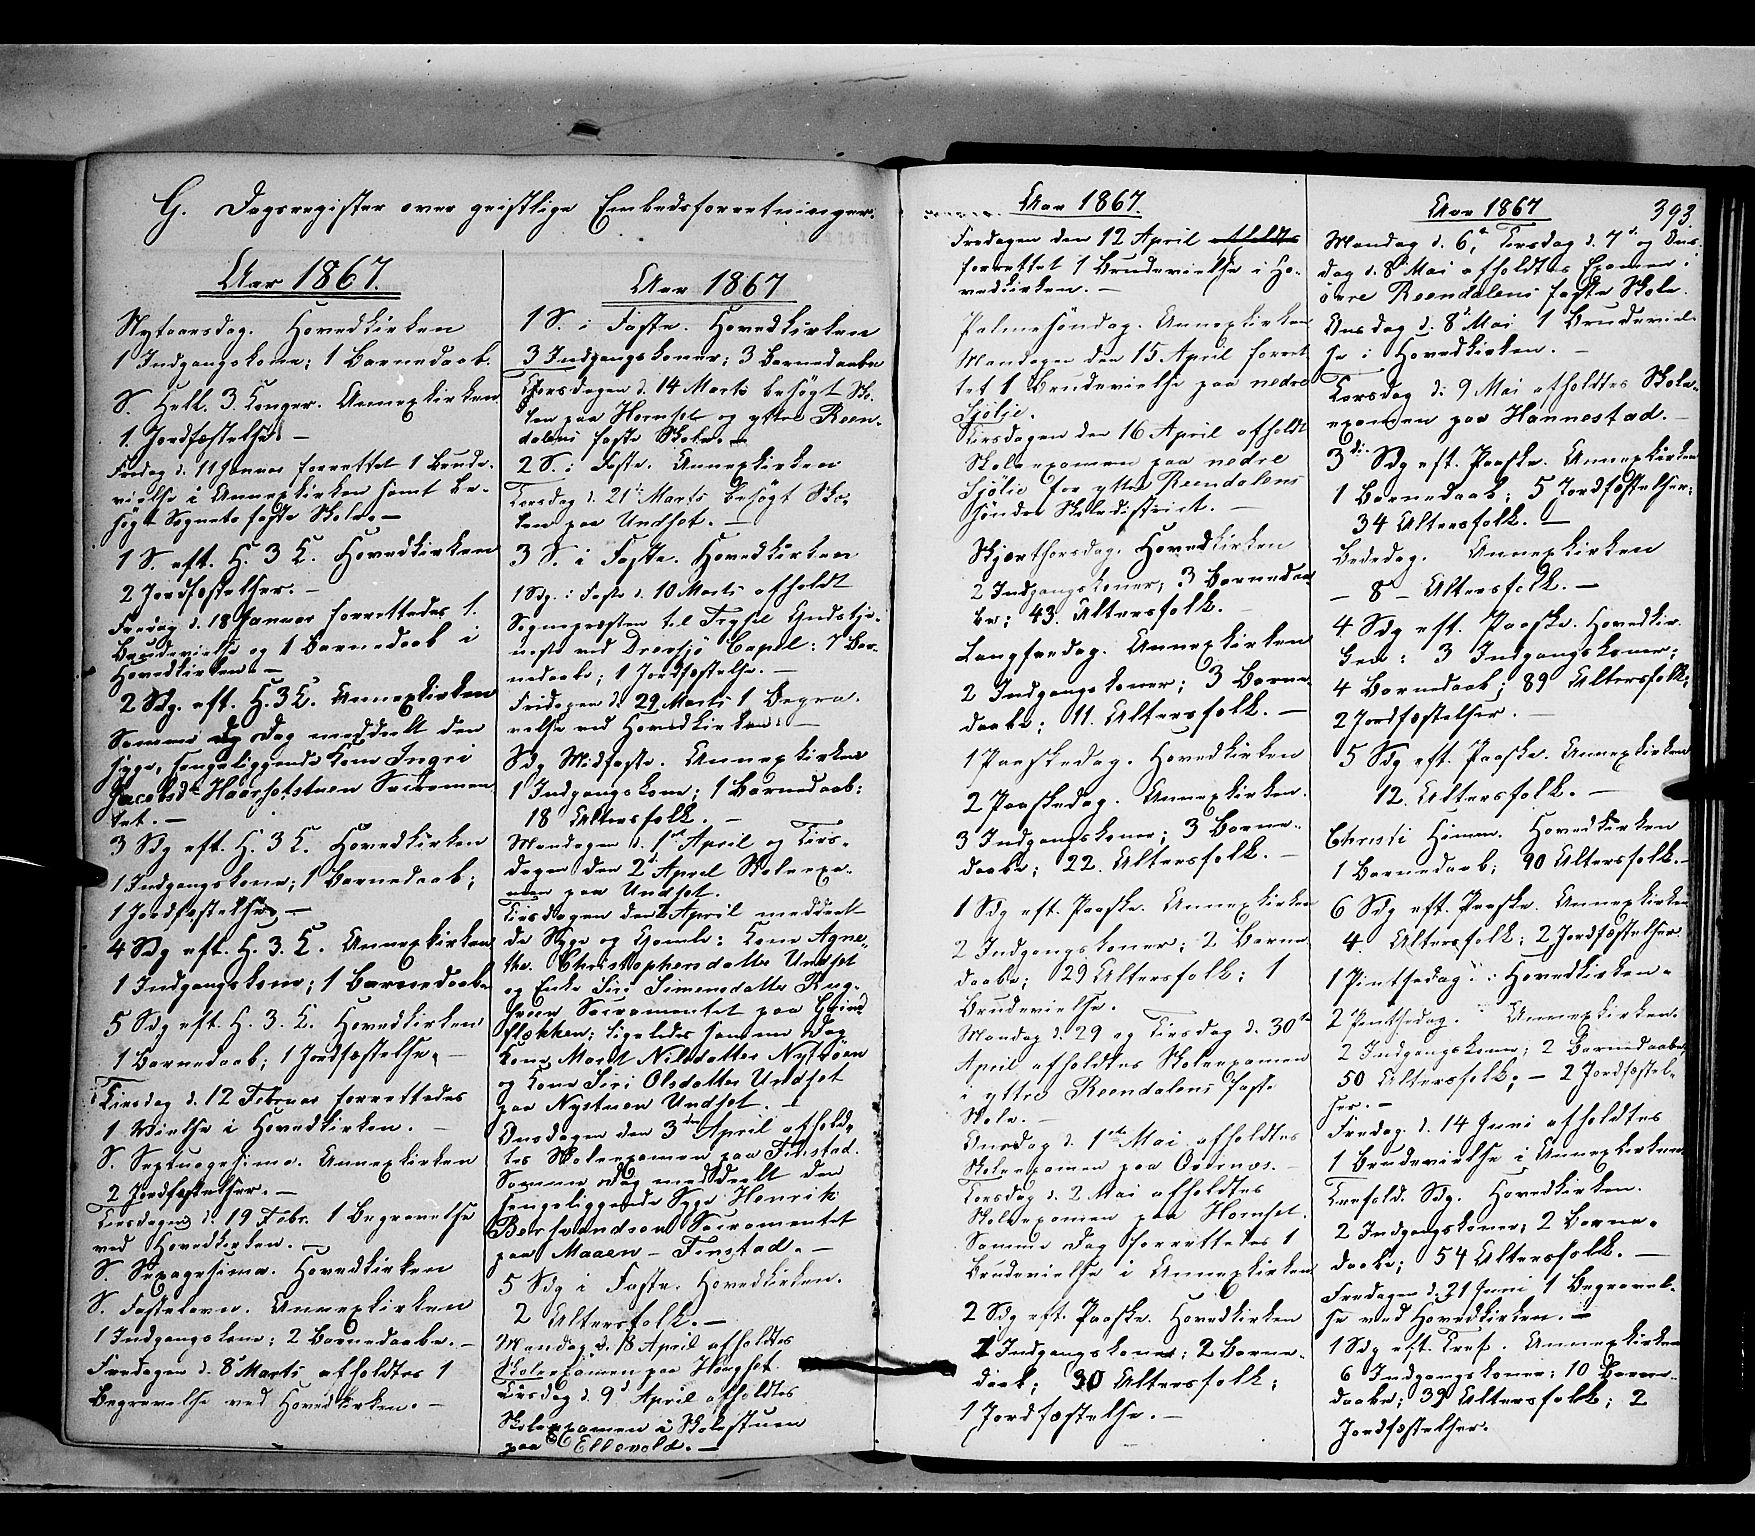 G. Dagsregister over geistlige Embedsforretninger.
Aar 1867.
Nytaarsdag. Hovedkirken
1 Indgangskone; 1 Barnedaab.
S. Hell. 3 Konger. Annexkirken
1 Jordfæstelse. —
Fredag d. 11 Januar forrettet 1 Brude-
vielse i Annexkirken samt be-
søgt Sognets faste Skole. —
1 S. eft. H. 3 K. Hovedkirken
2 Jordfæstelser. —
Fredag d. 18 Januar forrettedes 1
Brudevielse og 1 Barnedaab i
Hovedkirken. —
2 Sdg. eft. H. 3 K. Annexkirken
Samme Dag meddeelt den
syge, sengeliggende Kone Ingri
Jacobsdr Haarsetstuen Sacramen
tet. —
3 Sdg eft. H. 3 K. Hovedkirken
1 Indgangskone; 1 Barnedaab;
1 Jordfæstelse. —
4 Sdg eft. H. 3. K. Annexkirken
1 Indgangskone; 1 Barnedaab.
5 Sdg eft. H. 3. K. Hovedkirken
1 Barnedaab; 1 Jordfæstelse. —
Tirsdag d. 12 Februar forrettedes
1 Vielse i Hovedkirken. —
S. Septuagesima. Annexkirken
2 Jordfæstelser. —
Tirsdagen d. 19 Febr. 1 Begravelse
ved Hovedkirken. —
S. Sexagesima. Hovedkirken
S. Fastelavn. Annexkirken
1 Indgangskone; 2 Barnedaabe. —
Fredagen d. 8 Marts afholdtes 1
Begravelse ved Hovedkirken. —
Aar 1867
1 S. i Faste. Hovedkirken
3 Indgangskoner; 3 Barnedaabe
Thorsdagen d. 14 Marts besøgt Sko-
len paa Hornset og yttre Reen-
dalens faste Skole. —
2 S. i Faste. Annexkirken
Torsdag d. 21 Marts besøgt Sko-
len paa Undset. —
3 S. i Faste. Hovedkirken
1 Sdg. i Faste d. 10 Marts afholdt
Sognepræsten til Trysil Gudstje-
neste ved Drevsjø Capel: 7 Bar-
nedaabe; 1 Jordfæstelse. —
Fridagen d. 29 Marts 1 Begra-
velse ved Hovedkirken. —
Sdg Midfaste. Annexkirken
1 Indgangskone; 1 Barnedaab;
18 Altersfolk. —
Mandagen d. 1ste April og Tirs-
dagen den 2 April Skoleexa-
men paa Undset.
Tirsdagen den 2 April meddeel-
de Syge og Gamle: Kone Agne-
the Christophersdatter Undset
og Enke Siri Simensdatter Rug-
sveen Sacramentet paa Grind
flækken; ligeledes samme Dag
Kone Marit Nilsdatter Nystuen
og Kone Siri Olsdatter Undset
paa Nystuen Undset. —
Onsdagen den 3die April afhold-
tes Skoleexamen paa Finstad.
Samme Dag meddeelt den
sengeliggende Syge Henrik
Berthandsen Sacramentet
paa Maaen – Finstad. —
5 Sdg i Faste. Hovedkirken.
2 Altersfolk. —
Mandag d. 8 April afholdtes
Skoleexamen paa Haugset.
Tirsdag d. 9 April afholdtes
Skoleexamen i Skolestuen
paa Ellevold. —
Aar 1867.
Fredagen den 12 April afholdtes
forrettet 1 Brudevielse i Ho-
vedkirken. —
Palmesøndag. Annexkirken
Mandagen den 15 April forret
tet 1 Brudevielse paa nedre
Sjølie.
Tirsdagen den 16 April afholdt
Skoleexamen paa nedre
Sjølie for yttre Reendalens
søndre Skoledistrict. —
Skjærthorsdag. Hovedkirken
2 Indgangskoner; 3 Barnedaa
be; 43 Altersfolk. —
Langfredag. Annexkirken
2 Indgangskoner; 3 Barne-
daabe; 11. Altersfolk. —
1 Paaskedag. Hovedkirken
2 Paaskedag. Annexkirken.
3 Indgangskoner; 3 Barne-
daabe; 22. Altersfolk. —
1 Sdg eft. Paaske. Annexkirken
2 Indgangskoner; 2 Barne-
daabe; 29 Altersfolk; 1
Brudevielse.
Mandag d. 29 og Tirsdag d. 30te
April afholdtes Skoleexamen
i yttre Reendalens faste
Skole. —
Onsdag d. 1ste Mai afholdtes
Skoleexamen paa Qvernæs. —
Torsdag d. 2 Mai afholdtes
Skoleexamen paa Hornset.
Samme Dag forrettedes 1
Brudevielse i Annexkirken
2 Sdg eft. Paaske. Hovedkirken
2 Indgangskoner; 2 Barne-
daab; 30 Altersfolk;
1 Jordfæstelse. —
393.
Aar 1867
Mandag d. 6, Tirsdag d. 7 og Ons-
dag d. 8 Mai afholdtes Examen i
øvre Reendalens faste Skole.
Onsdag d. 8 Mai 1 Brudeviel-
se i Hovedkirken. —
Torsdag d. 9 Mai afholdtes Skole-
examen paa Hannestad. —
3die Sdg eft. Paaske. Annexkirken
1 Barnedaab; 5 Jordfæstelser;
34 Altersfolk. —
Bededag. Annexkirken
– 8 – Altersfolk. —
4 Sdg eft. Paaske. Hovedkir-
ken: 3 Indgangskoner;
4 Barnedaab; 89 Altersfolk;
2 Jordfæstelser. —
5 Sdg eft. Paaske. Annexkirken
12. Altersfolk. —
Christi Himm. Hovedkirken
1 Barnedaab; 90 Altersfolk. —
6 Sdg eft. Paaske. Annexkirken
4. Altersfolk; 2 Jordfæstelser
1 Pintsedag. Hovedkirken.
2 Pintsedag. Annexkirken.
2 Indgangskoner; 2 Barnedaabe;
50 Altersfolk; – 2 Jordfæstel-
ser. —
Fredag d. 14 Juni afholdtes
1 Brudevielse i Annexkirken
Trefold. Sdg. Hovedkirken.
2 Indgangskoner; 2 Barne-
daabe; 54 Altersfolk. —
Fredagen d. 21 Juni 1 Begravel-
se ved Hovedkirken. —
1 Sdg eft. Tref. Annexkirken
6 Indgangskoner; 10 Barne-
daabe; 39 Altersfolk; 2
Jordfæstelser.